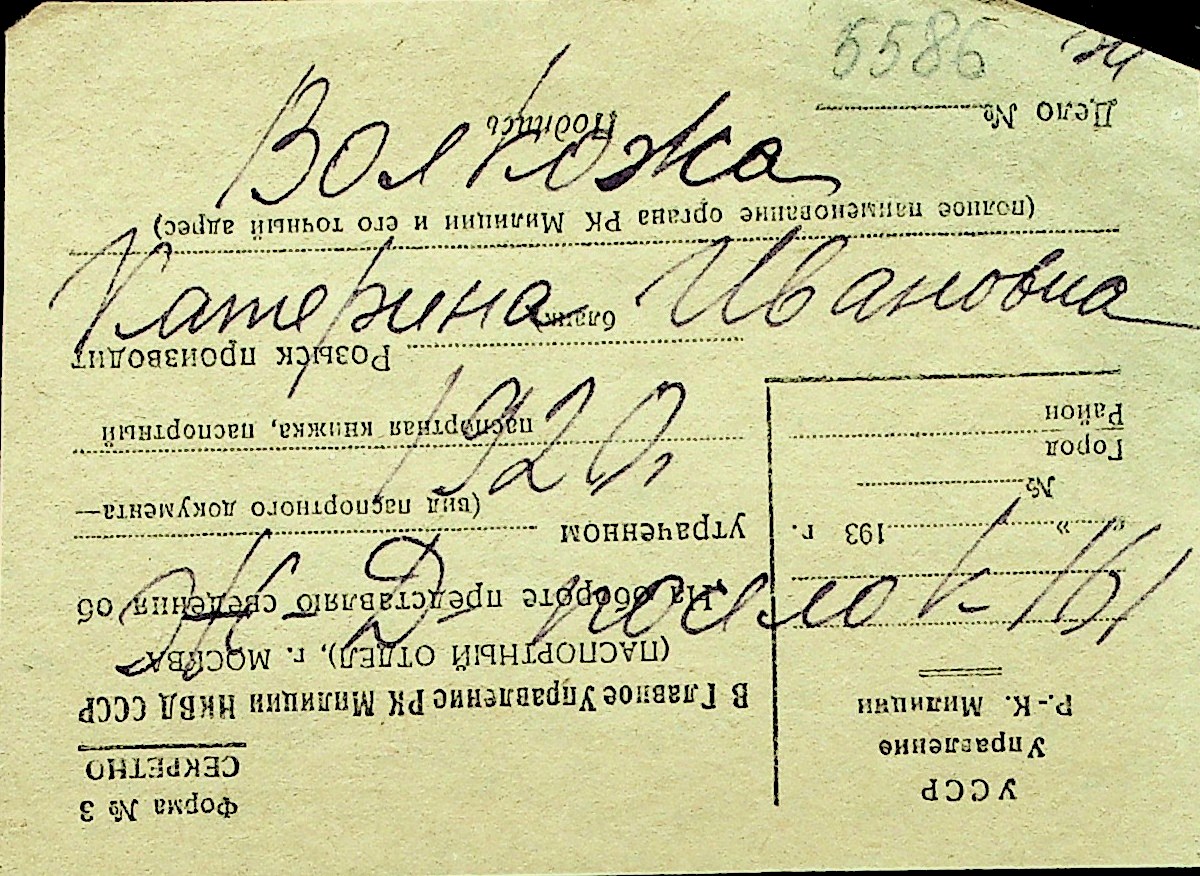 5586
Волкожа
Катерина Ивановна
1920,
Ж-Д поселок
УССР
Управление
Р.-К. Милиции
„ “ 193 г.
№
Город
Район
Форма № 3
СЕКРЕТНО
В Главное Управление РК Милиции НКВД СССР
(ПАСПОРТНЫЙ ОТДЕЛ), г. МОСКВА
На обороте представляю сведения об
утраченном
(вид паспортного документа—
паспортная книжка, паспортный
бланк
Розыск производит
(полное наименование органа РК Милиции и его точный адрес)
Подпись
Дело №